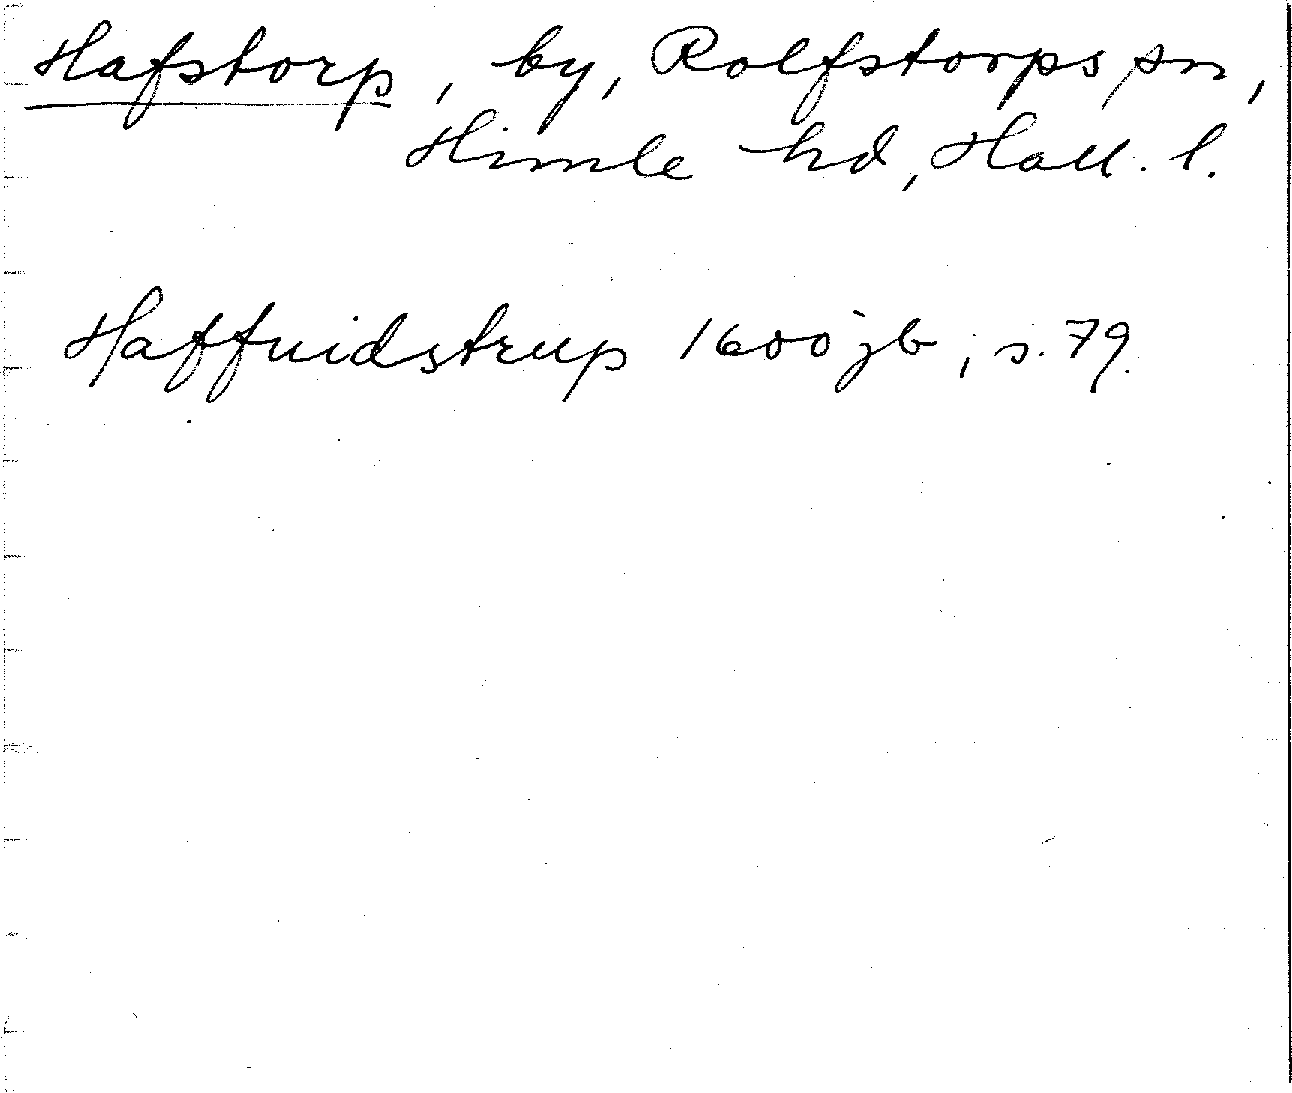 Hafstorp, by, Rolfstorps sn,
Himle hd, Hall. l.
Haffuidstrup 1600 jb, s. 79.